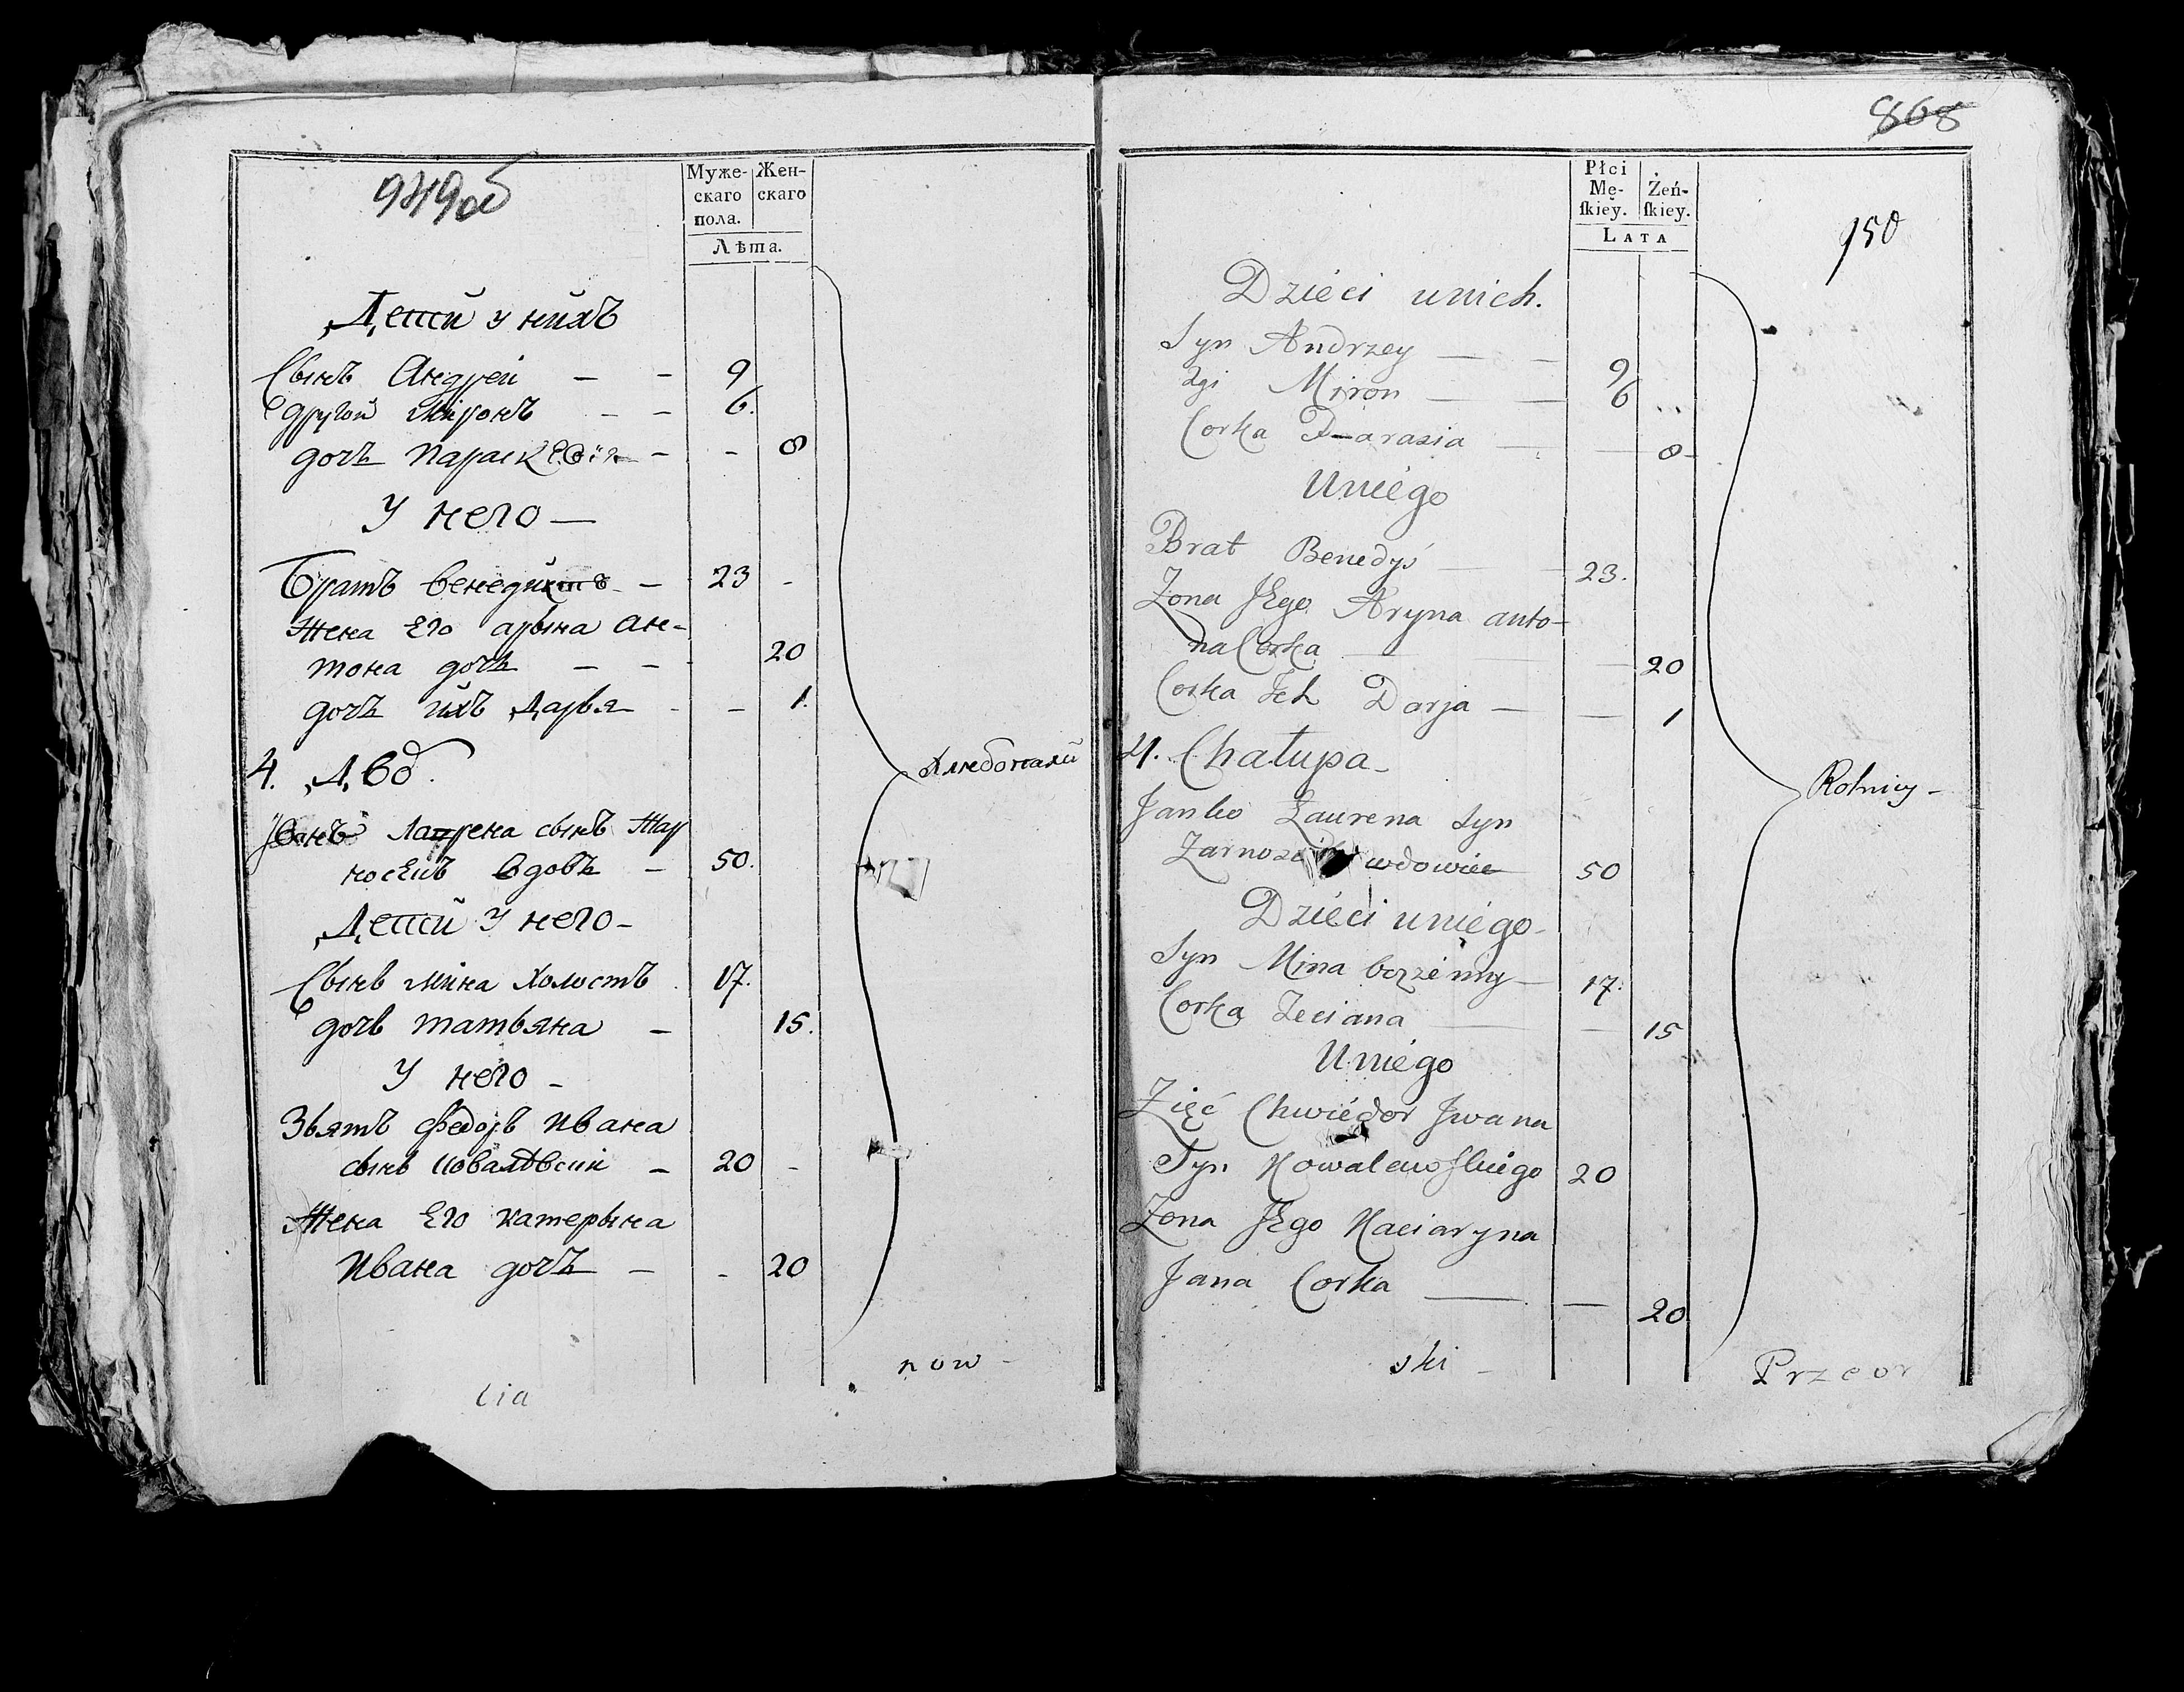 949об
Муже-
скаго
пола.
Жен-
скаго
Лѣта.
Детй у нйхъ
Сынъ Андреи — — 9
другой миронъ — — 6.
дочъ Параскевія — — 8
У него —
Братъ Венедихтъ — 23 -
Жена Его арына Ан-
тона дочъ — — 20
дочъ ихъ Дарья - — 1.
4. Двo.
Иванъ Лаврена сынъ Жар
носекъ Вдовъ — 50.
Детй у него —
Сынъ мина Холостъ 17.
дочь татьяна — 15.
У него —
Зьятъ Федоръ Ивана
сынъ Ковалѣвски — 20 -
Жена Его катерына
Ивана дочъ — - 20
Хлебопахи
now -
cia
868
950
Płci
Mę-
ſkiey.
Żeń-
ſkiey.
LATA
Dziéci unich.
Syn Andrzey — — 9
2gi Miron — — 6
Corka Parasia — — 8
Uniégo
Brat Benedyś — 23.
Zona JEgo Aryna anto-
na Corka — — 20
Corka Ich Darja — — 1
4. Chałupa —
Janko Laurena Syn
wdowiec 50
Dziéci uniégo -
Syn Mina bezżénny — 17.
Corka Teciana — — 15
Uniégo
Zięć Chwiédor Jwana
Syn Kowalewſkiégo 20
Zona JEgo Kaciaryna
Jana Corka — — 20
Rolnicy -
ski -
Przeor